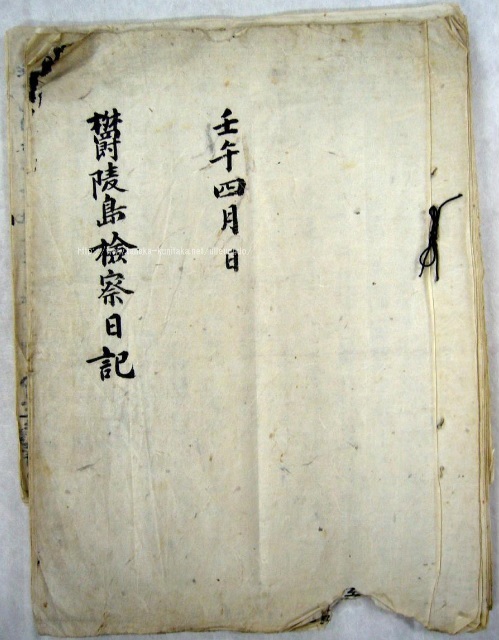 壬午四月日
鬱陵島檢察日記